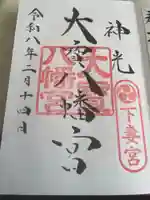 神光
大宝八幡宮
大宝
八幡宮
下妻宮
令和八年二月十四日